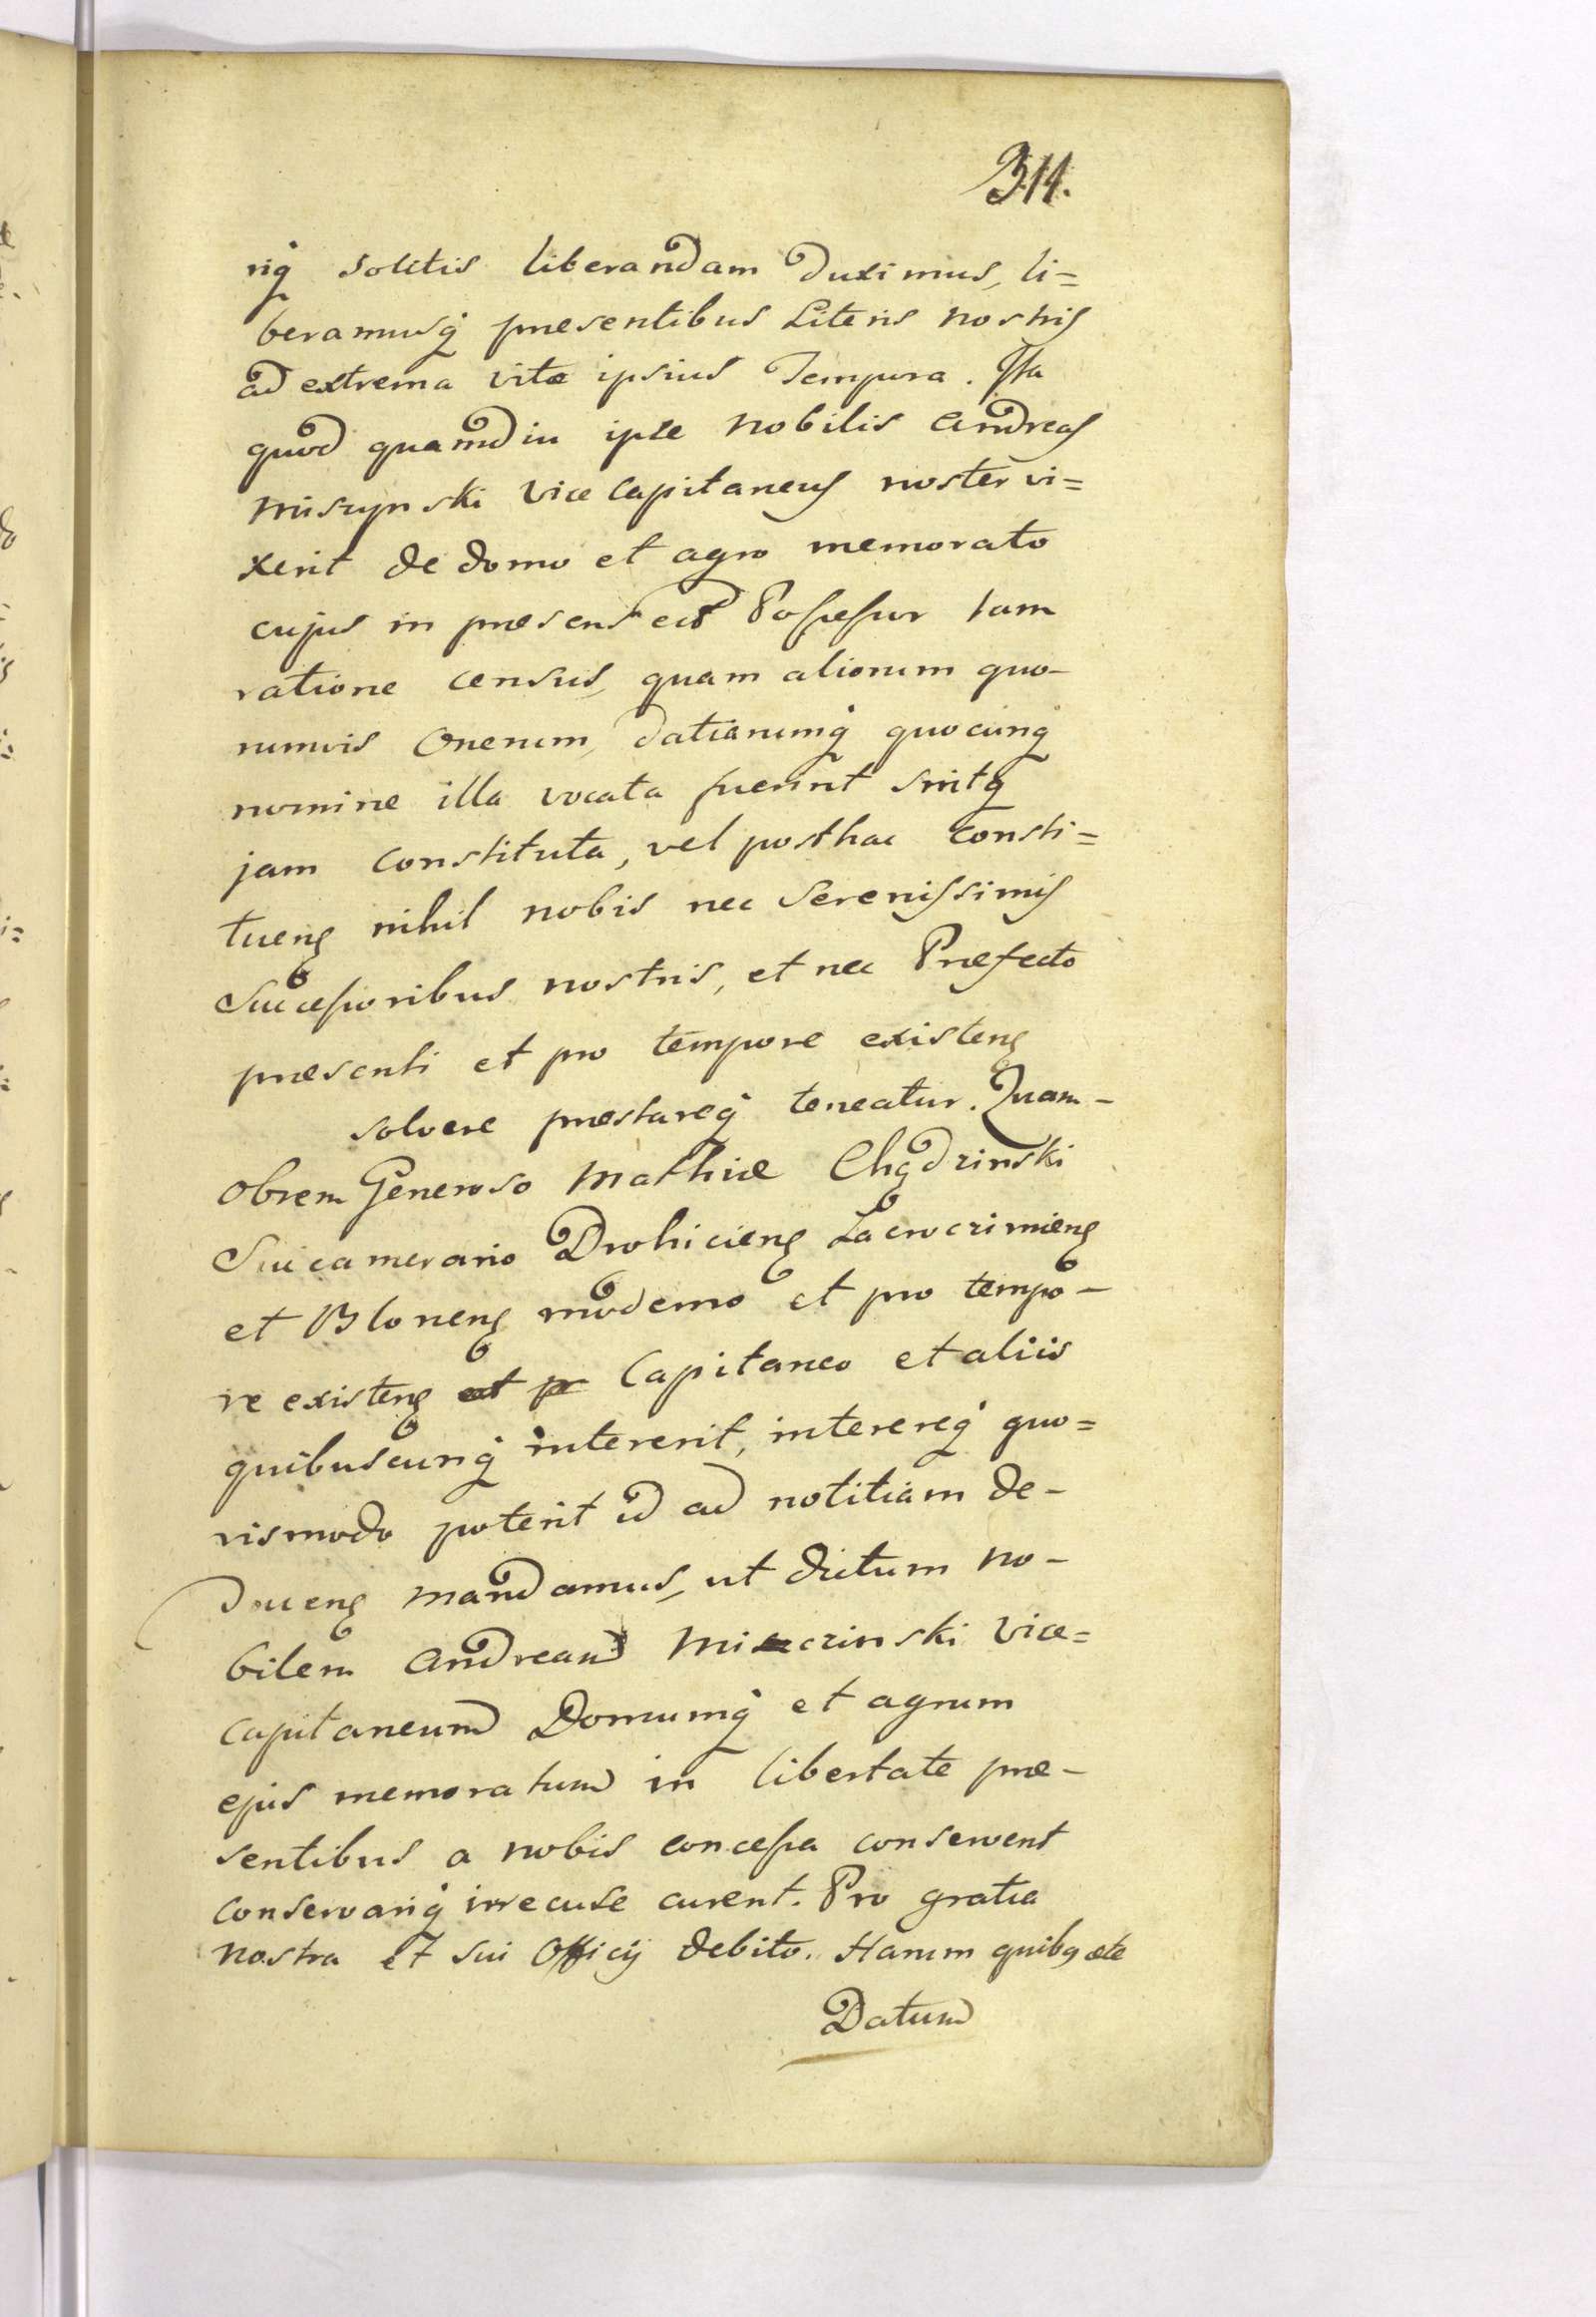 311.
riq solitis liberandam duximus, li=
beramusq presentibus Literis nostris
ad extrema vitæ ipsius Tempora. Ita
quod quamdiu ipse Nobilis Andreas
Miszynski Vice Capitaneus noster vi=
xerit de domo et agro memorato
cujus in præsens est Possessor tam
ratione census, quam aliorum quo-
rumvis Onerum, dationumq quocunq
nomine illa vocata fuerint sintq
jam constituta, vel posthac consti=
tueng nihil nobis nec Serenissimis
Successoribus nostris, et nec Præfecto
præsenti et pro tempore existeng
solvere præstareq teneatur. Quam-
obrem Generoso Mathiæ Chądzinski
Succamerario Drohicieng Zacroczimieng
et Bloneng moderno et pro tempo-
re existeng Capitaneo et aliis
quibuscunq intererit, interereq quo=
vismodo poterit id ad notitiam de-
duceng mandamus, ut dictum No-
bilem Andream Misczinski Vice=
capitaneum Domumq et agrum
ejus memoratum in libertate præ-
sentibus a nobis concessa conservent
conservariq irrecuse curent. Pro gratia
nostra et sui Officij debito. Harum quibq ete
Datum